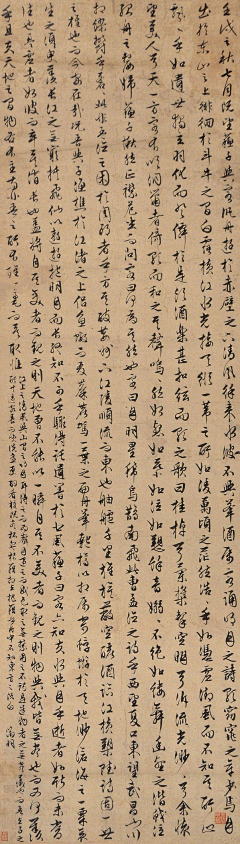 壬戌之秋七月既望蘇子與客泛舟遊於赤壁之下清風徐來水波不興舉酒屬客誦明月之詩歌窈窕之章少焉月
出於東山之上徘徊於斗牛之間白露橫江水光接天縱一葦之所如凌萬頃之茫然浩浩乎如馮虛御風而不知其所止
飄飄乎如遺世獨立羽化而登僊於是飲酒樂甚扣舷而歌之歌曰桂棹兮蘭槳擊空明兮泝流光渺渺兮余懷
望美人兮天一方客有吹洞簫者倚歌而和之其聲嗚嗚然如怨如慕如泣如訴餘音嫋嫋不絕如縷舞幽壑之潛蛟泣
孤舟之嫠婦蘇子愀然正襟危坐而問客曰何為其然也客曰月明星稀烏鵲南飛此非孟德之詩乎西望夏口東望武昌山川
相繆鬱乎蒼蒼此非孟德之困於周郎者乎方其破荊州下江陵順流而東也舳艫千里旌旗蔽空釃酒臨江橫槊賦詩固一世
之雄也而今安在哉況吾與子漁樵於江渚之上侶魚蝦而友麋鹿駕一葉之扁舟舉匏樽以相屬寄蜉蝣於天地渺滄海之一粟哀
吾生之須臾羨長江之無窮挾飛仙以遨遊抱明月而長終知不可乎驟得託遺響於悲風蘇子曰客亦知夫水與月乎逝者如斯而未嘗
往也盈虛者如彼而卒莫消長也蓋將自其變者而觀之則天地曾不能以一瞬自其不變者而觀之則物與我皆無盡也而又何羨
乎且夫天地之間物各有主苟非吾之所有雖一毫而莫取惟
江上之清風與山間之明月耳得之而為聲目遇之而成色取之無禁用之不竭是造物者之無盡藏也而吾與子之
所共適客喜而笑洗盞更酌肴核既盡杯盤狼藉相與枕藉乎舟中不知東方之既白